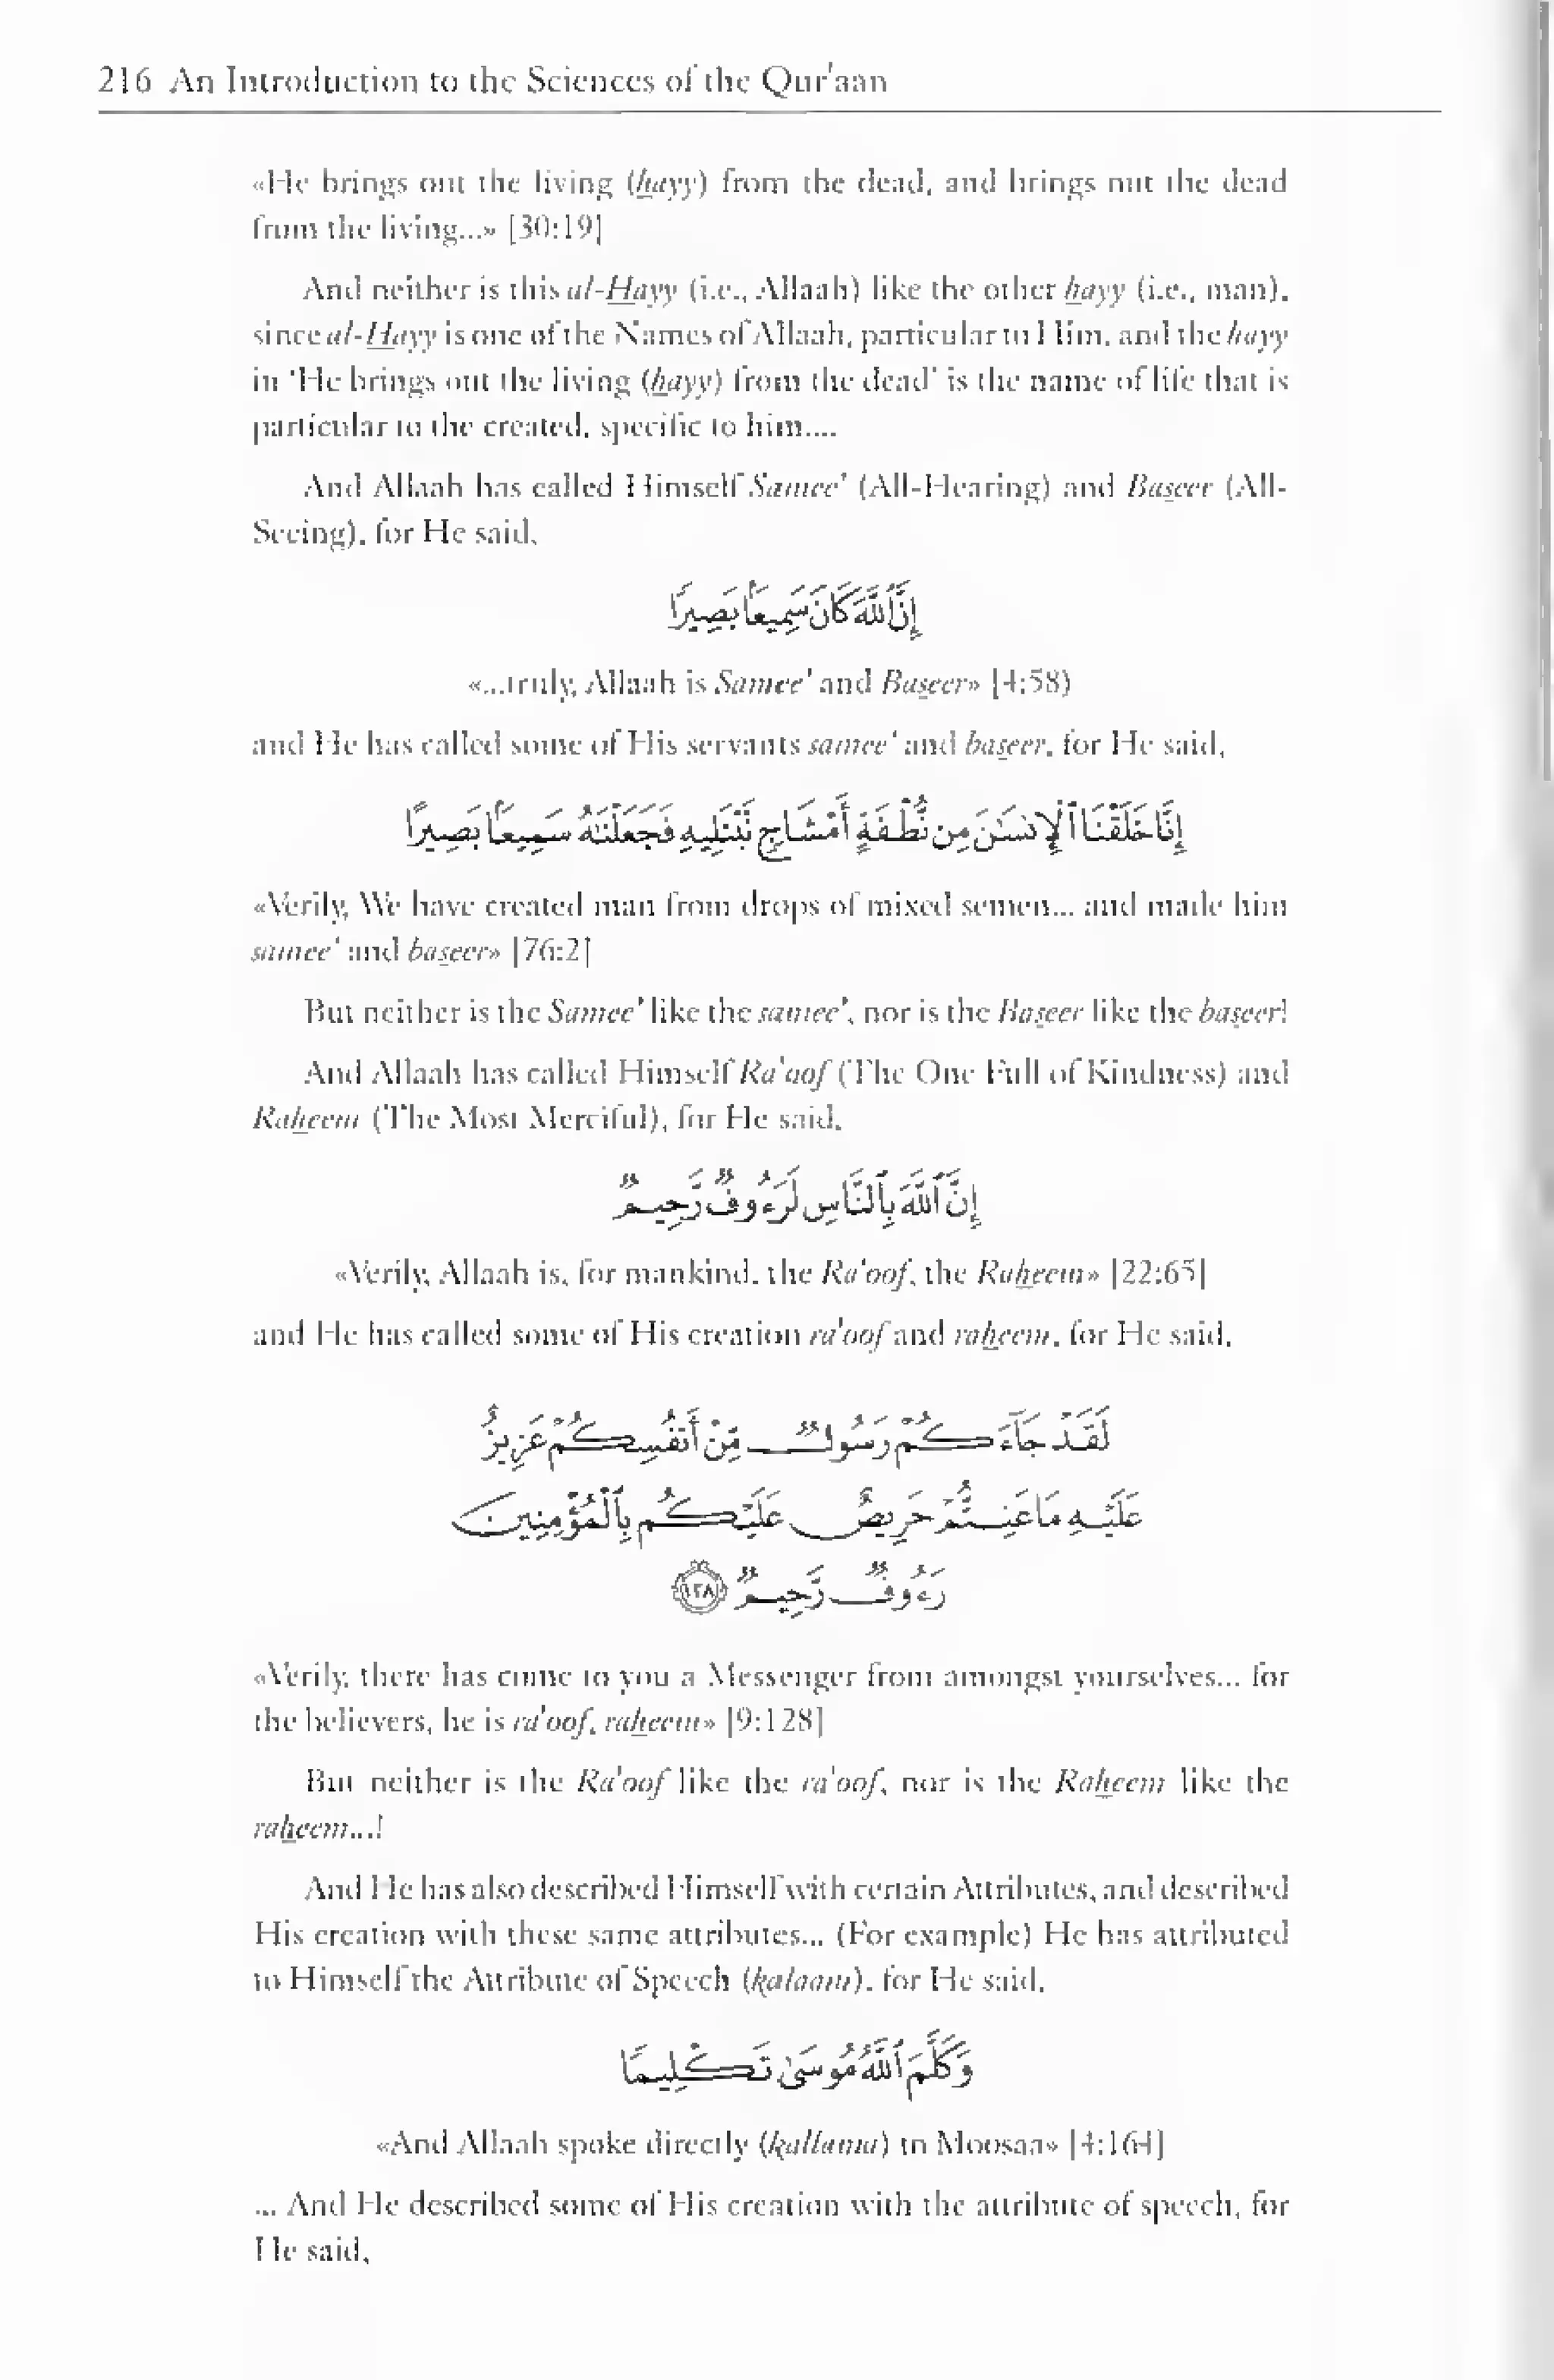 216 An Introduction to the Sciences of the Qur'aan
«He brings out the living (ḥayy) from the dead, and brings out the dead
from the living...» [30:19]
And neither is this al-Ḥayy (i.e., Allaah) like the other ḥayy (i.e., man),
since al-Ḥayy is one of the Names of Allaah, particular to Him, and the ḥayy
in 'He brings out the living (ḥayy) from the dead' is the name of life that is
particular to the created, specific to him....
And Allaah has called Himself Samee' (All-Hearing) and Baṣeer (All-
Seeing), for He said,
إِنَّ ٱللَّهَ كَانَ سَمِيعًۢا بَصِيرًا
«...truly, Allaah is Samee' and Baṣeer» [4:58)
and He has called some of His servants samee' and baṣeer, for He said,
إِنَّا خَلَقْنَا ٱلْإِنسَٰنَ مِن نُّطْفَةٍ أَمْشَاجٍ نَّبْتَلِيهِ فَجَعَلْنَٰهُ سَمِيعًۢا بَصِيرًا
«Verily, We have created man from drops of mixed semen... and made him
samee' and baṣeer» [76:2]
But neither is the Samee' like the samee', nor is the Baṣeer like the baṣeer!
And Allaah has called Himself Ra'aof (The One Full of Kindness) and
Raḥeem (The Most Merciful), for He said,
إِنَّ ٱللَّهَ بِٱلنَّاسِ لَرَءُوفٌ رَّحِيمٌ
«Verily, Allaah is, for mankind, the Ra'oof, the Raḥeem» [22:65]
and He has called some of His creation ra'oof and raḥeem, for He said,
لَقَدْ جَآءَكُمْ رَسُولٌ مِّنْ أَنفُسِكُمْ عَزِيزٌ
عَلَيْهِ مَا عَنِتُّمْ حَرِيصٌ عَلَيْكُم بِٱلْمُؤْمِنِينَ
رَءُوفٌ رَّحِيمٌ ١٢٨
«Verily, there has come to you a Messenger from amongst yourselves... for
the believers, he is ra'oof, raḥeem» [9:128]
But neither is the Ra'oof like the ra'oof, nor is the Raḥeem like the
raḥeem...!
And He has also described Himself with certain Attributes, and described
His creation with these same attributes... (For example) He has attributed
to Himself the Attribute of Speech (kalaam), for He said,
وَكَلَّمَ ٱللَّهُ مُوسَىٰ تَكْلِيمًا
«And Allaah spoke directly (kallama) to Moosaa» [4:164]
... And He described some of His creation with the attribute of speech, for
He said,